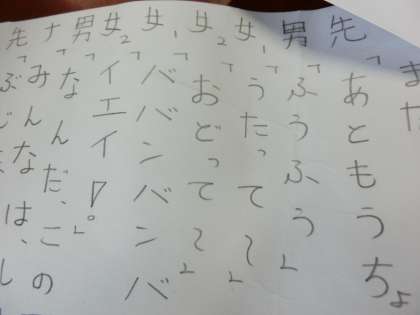 また
先「あともうちょ
男「ふうふう」
女1「うたって〜」
女2「おどって〜」
女1「ババンババンバ
女2「イエイ!。」
男「なんだ、この
ナ「みんな
先「ぶ
は、し